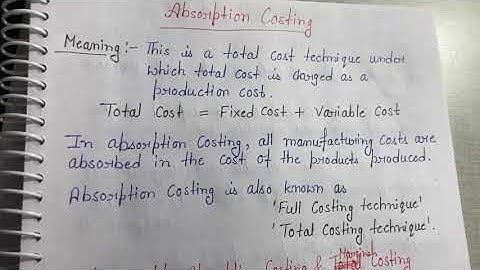 Absorption Costing
Meaning:- This is a total cost technique under
which total cost is charged as a
production cost.
Total Cost = Fixed Cost + Variable Cost
In absorption Costing, all manufacturing costs are
absorbed in the cost of the products produced.
Absorption Costing is also known as
'Full Costing technique'
'Total Costing technique'.
Absorption Costing & Marginal Costing